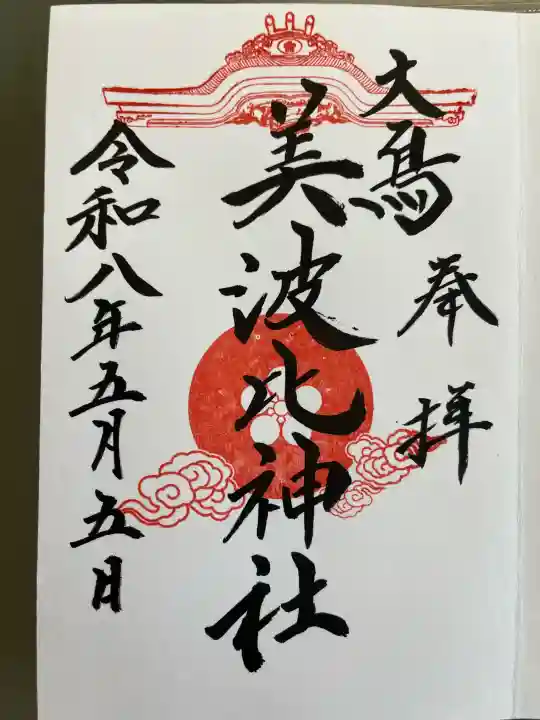 奉拝
大鳥
美波比神社
令和八年五月五日